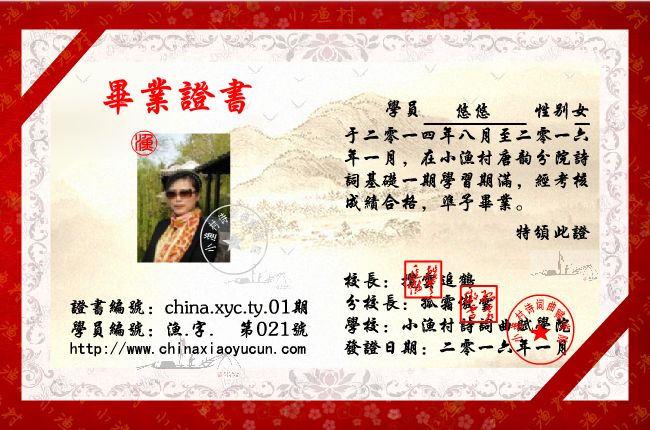 畢業證書
學員 悠悠 性别女
于二零一四年八月至二零一六
年一月，在小渔村唐韵分院詩
詞基礎一期學習期滿，經考核
成績合格，準予畢業。
特頒此證
證書編號：china.xyc.ty.01期
學員編號：漁.字. 第021號
http://www.chinaxiaoyucun.com
校長：攬雲追鶴
分校長：孤霜傲雪
學校：小渔村詩詞曲賦學院
發證日期：二零一六年一月